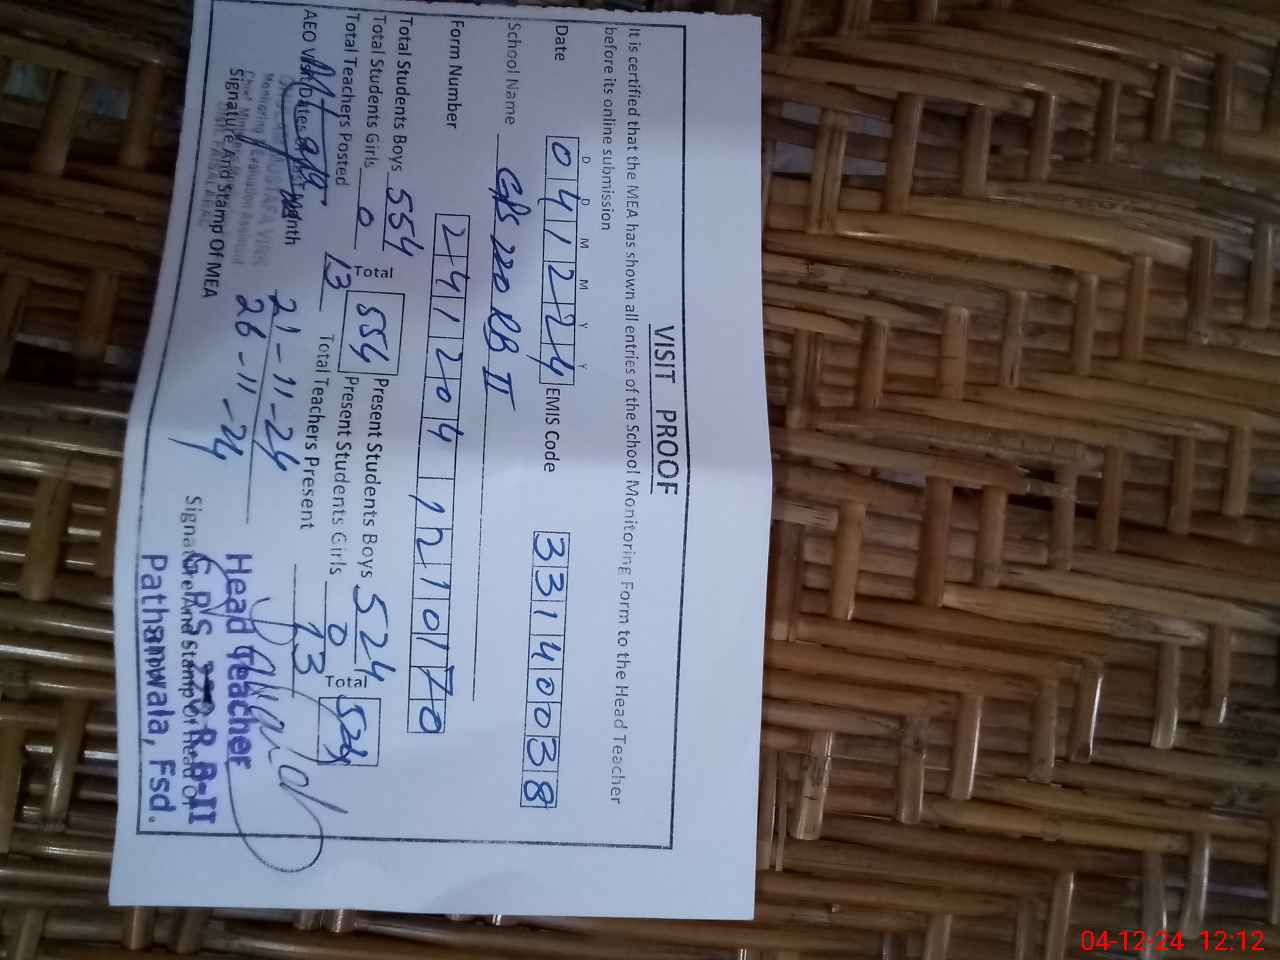 VISIT PROOF
It is certified that the MEA has shown all entries of the School Monitoring Form to the Head Teacher
before its online submission
D D M M Y Y
Date 0 4 1 2 2 4 EMIS Code 3 3 1 4 0 0 3 8
School Name GPS 220 RB II
Form Number 2 4 1 2 0 4 1 2 1 0 1 7 0
Total Students Boys 554 Total 554 Present Students Boys 524 Total 524
Total Students Girls 0 Present Students Girls 0
Total Teachers Posted 13 Total Teachers Present 13
AEO Visit Dates Month 21-11-24
26-11-24
Signature And Stamp Of MEA
Signature And Stamp Of Head
Head Teacher
G.P/S R.B-II
Pathanwala, Fsd.
04-12-24 12:12